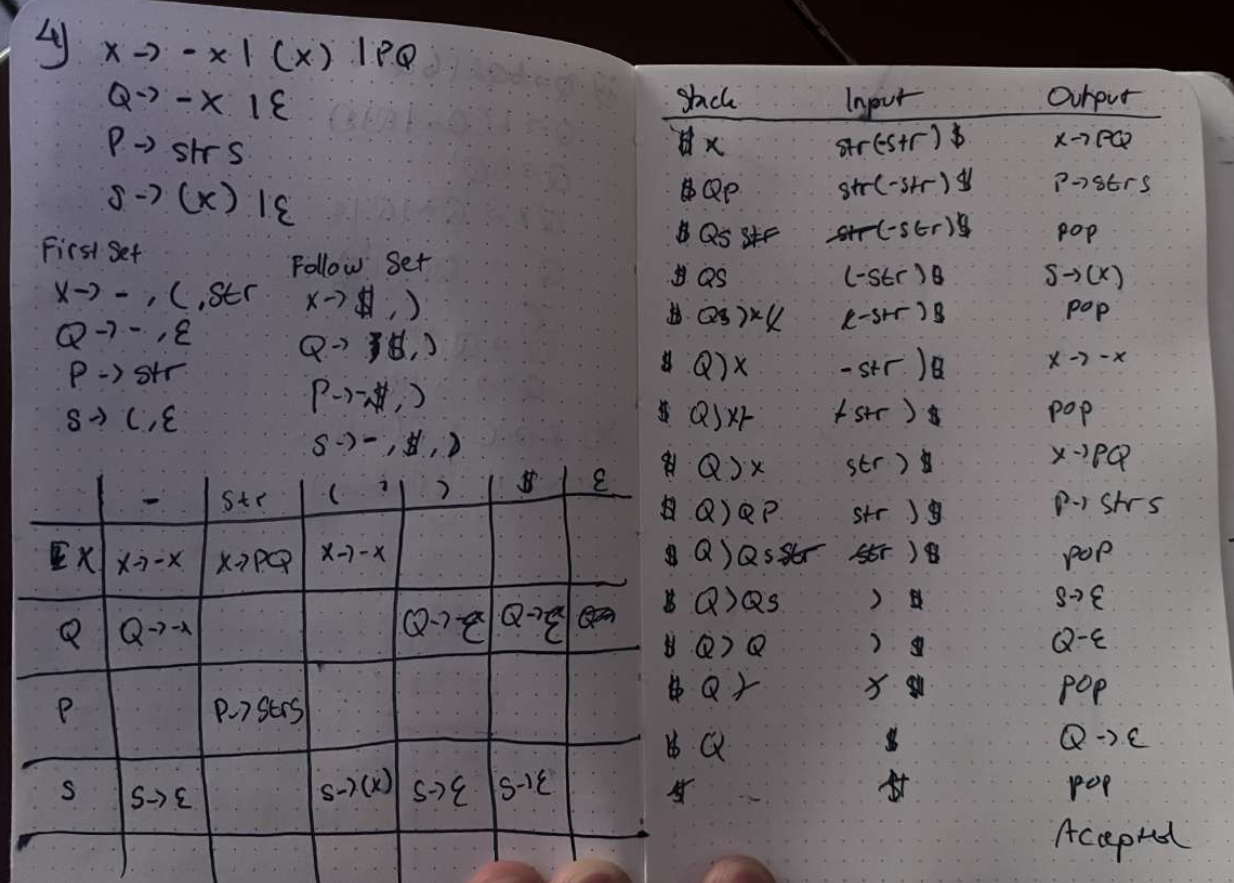 4) X → - x | (x) | PQ
Q → - X | ε
P → str s
S → (x) | ε
First Set
X → - , ( , str
Q → - , ε
P → str
S → ( , ε
Follow Set
X → $ , )
Q → $ , )
P → - $ , )
S → - , $ , )
- str ( ) $ ε
X X → - X X → PQ X → - X
Q Q → - x Q → ε Q → ε
P P → strs
S S → ε S → (x) S → ε S → ε
Stack Input Output
$ X str(-str) $ X → PQ
$ QP str(-str) $ P → strs
$ QS str str(-str) $ pop
$ QS (-str) $ S → (x)
$ Q ) x ( (-str) $ pop
$ Q ) X -str ) $ X → - x
$ Q ) x - - str ) $ pop
$ Q ) x str ) $ X → PQ
$ Q ) Q P str ) $ P → strs
$ Q ) Q s str str ) $ pop
$ Q ) Qs ) $ S → ε
$ Q ) Q ) $ Q - ε
$ Q ) ) $ pop
$ Q $ Q → ε
$ $ pop
Accepted